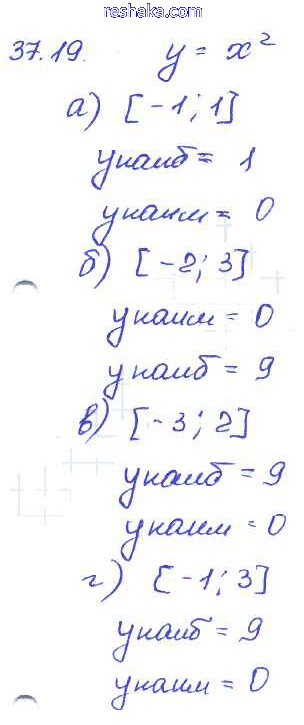 reshaka.com
37.19. y = x²
а) [-1; 1]
унаиб = 1
унаим = 0
б) [-2; 3]
унаим = 0
унаиб = 9
в) [-3; 2]
унаиб = 9
унаим = 0
г) [-1; 3]
унаиб = 9
унаим = 0